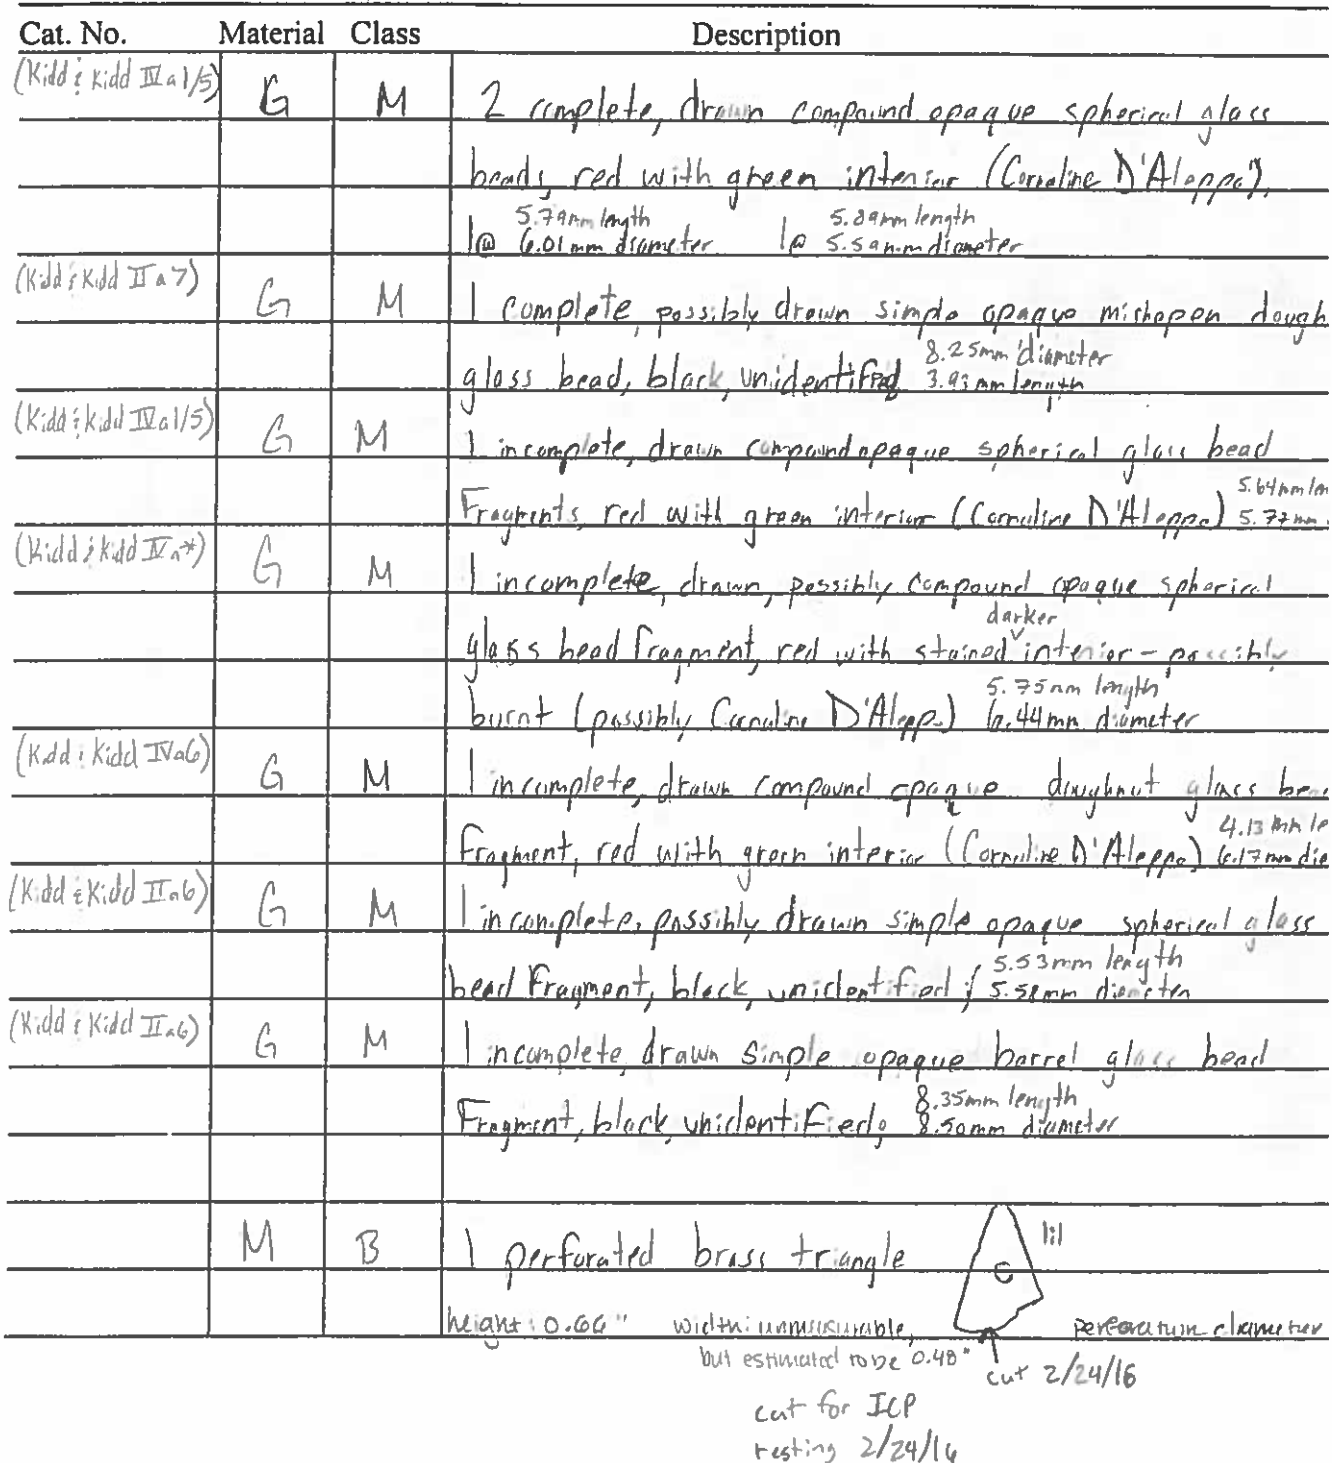 Cat. No. Material Class Description
(Kidd & Kidd IVa1/5) G M 2 complete, drawn compound opaque spherical glass
beads, red with green interior (Cornaline D'Aleppo),
5.79mm length 5.89mm length
1@ 6.01mm diameter 1@ 5.59mm diameter
(Kidd & Kidd IIa7) G M 1 complete, possibly drawn simple opaque mishapen dough
8.25mm diameter
glass bead, black, unidentified 3.93mm length
(Kidd & Kidd IVa1/5) G M 1 incomplete, drawn compound opaque spherical glass bead
5.64mm len
Fragments, red with green interior (Cornaline D'Aleppo) 5.77mm
(Kidd & Kidd IVa*) G M 1 incomplete, drawn, possibly compound opaque spherical
darker
glass bead fragment, red with stained interior - possibly
5.75mm length
burnt (possibly Cornaline D'Aleppo) 6.44mm diameter
(Kidd & Kidd IVa6) G M 1 incomplete, drawn compound opaque doughnut glass bea
4.13mm le
fragment, red with green interior (Cornaline D'Aleppo) 6.17mm dia
(Kidd & Kidd IIa6) G M 1 incomplete, possibly drawn simple opaque spherical glass
5.53mm length
bead fragment, black, unidentified; 5.58mm diameter
(Kidd & Kidd IIa6) G M 1 incomplete, drawn simple opaque barrel glass bead
8.35mm length
Fragment, black, unidentified; 8.50mm diameter
M B 1 perforated brass triangle 1:1
height: 0.66" width: unmeasurable, perforation diameter
but estimated to be 0.48" cut 2/24/16
cut for ICP
testing 2/24/16